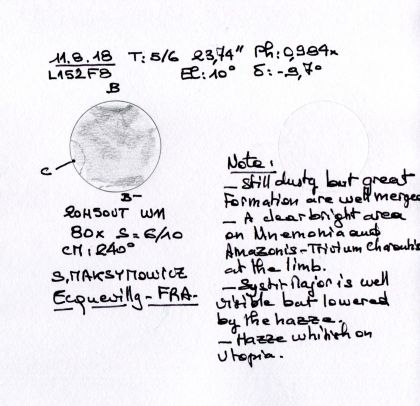 11.8.18 T: 5/6 23,74" Ph: 0,984x
L152F8 El: 10° δ: -9,7°
B
C
B-
20H50UT WM
80x S=6/10
CM: 240°
S. MAKSYMOWICZ
Ecquevilly - FRA -
Note:
- Still dusty but great
Formation are well merged
- A clear bright area
on Mnemonia and
Amazonis - Trivium Charontis
at the limb.
- Systir Major is well
visible but lowered
by the hazze.
- Hazze whitish on
Utopia.